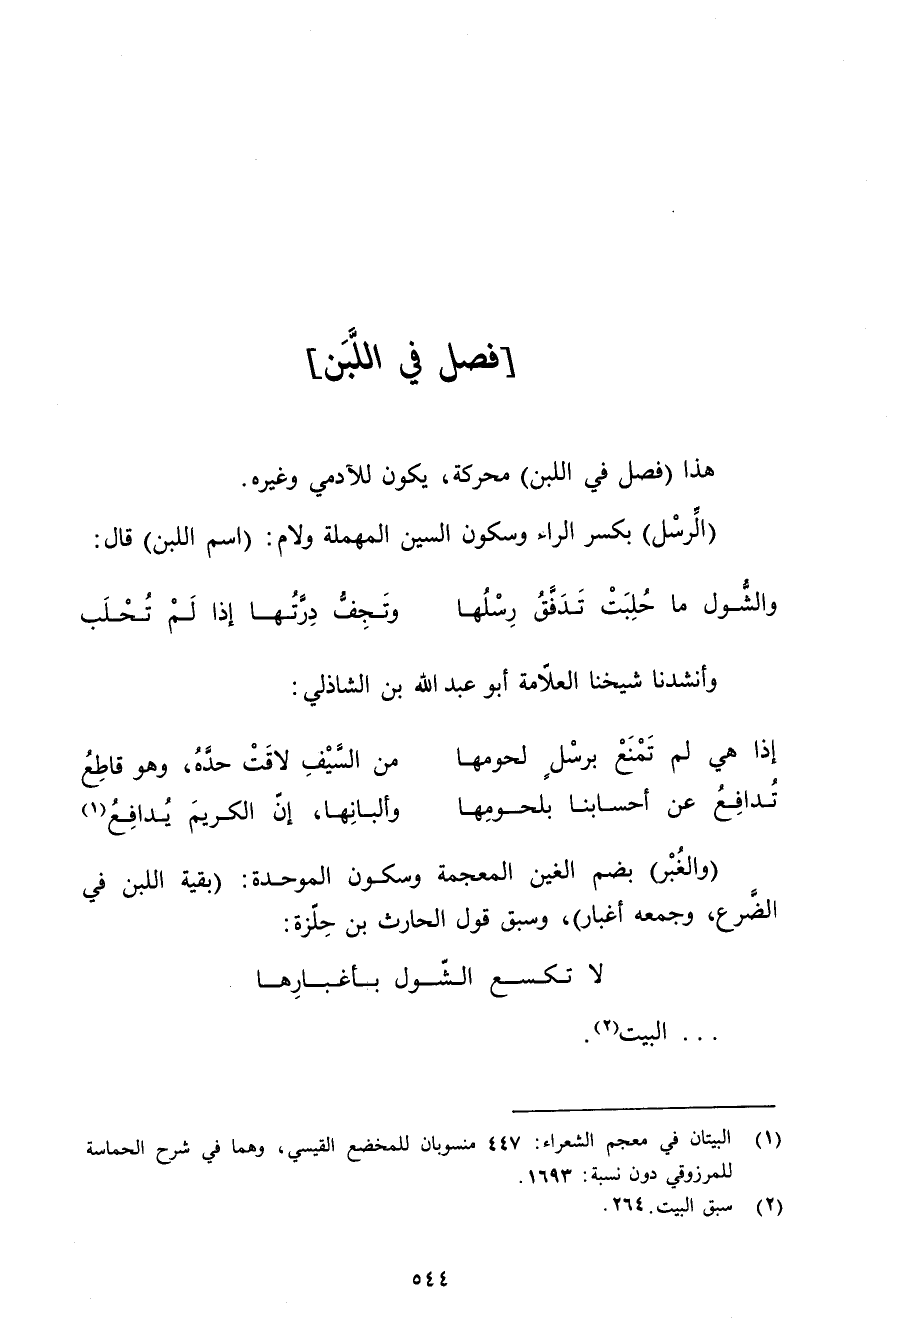 [فصل في اللَّبَن]
هذا (فصل في اللبن) محركة، يكون للآدمي وغيره.
(الرِّسْل) بكسر الراء وسكون السين المهملة ولام: (اسم اللبن) قال:
والشُّول ما حُلِبَتْ تَدَفَّقُ رِسْلُها وتَجِفُّ دِرَّتُها إذا لَمْ تُحْلَب
وأنشدنا شيخنا العلاّمة أبو عبد الله بن الشاذلي:
إذا هي لم تَمْنَعْ برسْلٍ لحومها من السَّيْفِ لاقَتْ حدَّهُ، وهو قاطِعُ
تُدافِعُ عن أحسابنا بلحومِها وألبانِها، إنّ الكريمَ يُدافِعُ(١)
(والغُبْر) بضم الغين المعجمة وسكون الموحدة: (بقية اللبن في
الضَّرع، وجمعه أغبار)، وسبق قول الحارث بن حِلّزة:
لا تكسع الشّول بأغبارِها
... البيت(٢).
(١) البيتان في معجم الشعراء: ٤٤٧ منسوبان للمخضع القيسي، وهما في شرح الحماسة
للمرزوقي دون نسبة: ١٦٩٣.
(٢) سبق البيت. ٢٦٤.
٥٤٤